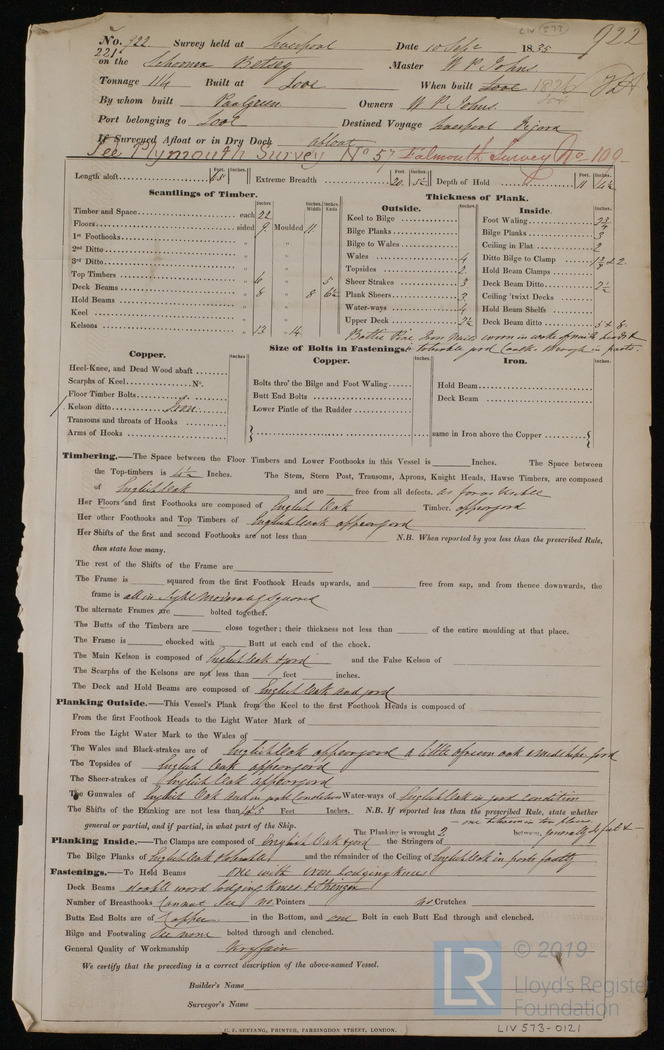 LIV 573
922
No. 922 Survey held at Liverpool Date 10 Sept 1835
221 on the Schooner Betsey Master W P Johns
Tonnage 114 Built at Looe When built Looe
By whom built Owners W. P. Johns.
Port belonging to Looe Destined Voyage Liverpool
If Surveyed Afloat or in Dry Dock afloat
See Plymouth Survey No 57 Falmouth Survey No 100
Length aloft Feet. 68 Inches. Extreme Breadth Feet. 20 Inches. 5½ Depth of Hold Feet. 11 Inches. 4½
Scantlings of Timber.
Inches. Inches. Middle Inches. Ends
Timber and Space each 22
Floors sided 9 Moulded 11
1st Foothooks " "
2nd Ditto " "
3rd Ditto " "
Top Timbers " 6 " 5
Deck Beams " 8 " 8 6½
Hold Beams " "
Keel " "
Kelsons " 13 " 14
Thickness of Plank.
Outside. Inches.
Keel to Bilge
Bilge Planks
Bilge to Wales
Wales 4
Topsides 2
Sheer Strakes 3
Plank Sheers
Water-ways 4
Upper Deck 2½
Inside. Inches.
Foot Waling
Bilge Planks 3
Ceiling in Flat 2
Ditto Bilge to Clamp
Hold Beam Clamps
Deck Beam Ditto 2½
Ceiling 'twixt Decks
Hold Beam Shelfs
Deck Beam ditto 5 & 8
Baltic Pine Iron Nails worn in wake of
Size of Bolts in Fastenings.
Copper. Inches
Heel-Knee, and Dead Wood abaft
Scarphs of Keel No.
Floor Timber Bolts
Kelson ditto Iron
Transoms and throats of Hooks
Arms of Hooks
Copper. Inches.
Bolts thro' the Bilge and Foot Waling
Butt End Bolts
Lower Pintle of the Rudder
Iron. Inches.
Hold Beam
Deck Beam
same in Iron above the Copper
Timbering.—The Space between the Floor Timbers and Lower Foothooks in this Vessel is Inches. The Space between
the Top-timbers is 4½ Inches. The Stem, Stern Post, Transoms, Aprons, Knight Heads, Hawse Timbers, are composed
of English Oak and are free from all defects. as far as visible
Her Floors and first Foothooks are composed of English Oak Timber. appear good
Her other Foothooks and Top Timbers of English Oak appear good
Her Shifts of the first and second Foothooks are not less than N.B. When reported by you less than the prescribed Rule,
then state how many.
The rest of the Shifts of the Frame are
The Frame is squared from the first Foothook Heads upwards, and free from sap, and from thence downwards, the
frame is all in sight moderately squared
The alternate Frames are bolted together.
The Butts of the Timbers are close together; their thickness not less than of the entire moulding at that place.
The Frame is chocked with Butt at each end of the chock.
The Main Kelson is composed of English Oak & good and the False Kelson of
The Scarphs of the Kelsons are not less than feet inches.
The Deck and Hold Beams are composed of English Oak and good
Planking Outside.—This Vessel's Plank from the Keel to the first Foothook Heads is composed of
From the first Foothook Heads to the Light Water Mark of
From the Light Water Mark to the Wales of
The Wales and Black-strakes are of English Oak appear good a little of rum oak amidships good
The Topsides of English Oak appear good
The Sheer-strakes of English Oak appear good
The Gunwales of English Oak and in good Condition Water-ways of English Oak in good condition
The Shifts of the Planking are not less than Feet Inches. N.B. If reported less than the prescribed Rule, state whether
general or partial, and if partial, in what part of the Ship. — one between in two places
The Planking is wrought 2 between, generally
Planking Inside.—The Clamps are composed of English Oak & good the Stringers of
The Bilge Planks of English Oak and the remainder of the Ceiling of English Oak in parts faulty
Fastenings.—To Hold Beams one with iron Lodging knees
Deck Beams wood lodging knees
Number of Breasthooks Cannot See no Pointers no Crutches
Butts End Bolts are of Copper in the Bottom, and one Bolt in each Butt End through and clenched.
Bilge and Footwaling See none bolted through and clenched.
General Quality of Workmanship Very fair
We certify that the preceding is a correct description of the above-named Vessel.
Builder's Name
Surveyor's Name
C. F. SEYFANG, PRINTER, FARRINGDON STREET, LONDON.
LR
© 2019
Lloyd's Register
Foundation
LIV 573-0121